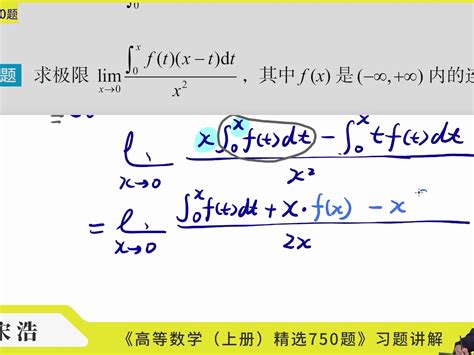 0题 ∫₀
题 求极限 lim_{x→0} \frac{∫₀ˣ f(t)(x−t)dt}{x²} ，其中 f(x) 是 (−∞,+∞) 内的
lim_{x→0} \frac{x∫₀ˣ f(t)dt − ∫₀ˣ t f(t)dt}{x²}
= lim_{x→0} \frac{∫₀ˣ f(t)dt + x·f(x) − x}{2x}
宋浩 《高等数学（上册）精选750题》习题讲解